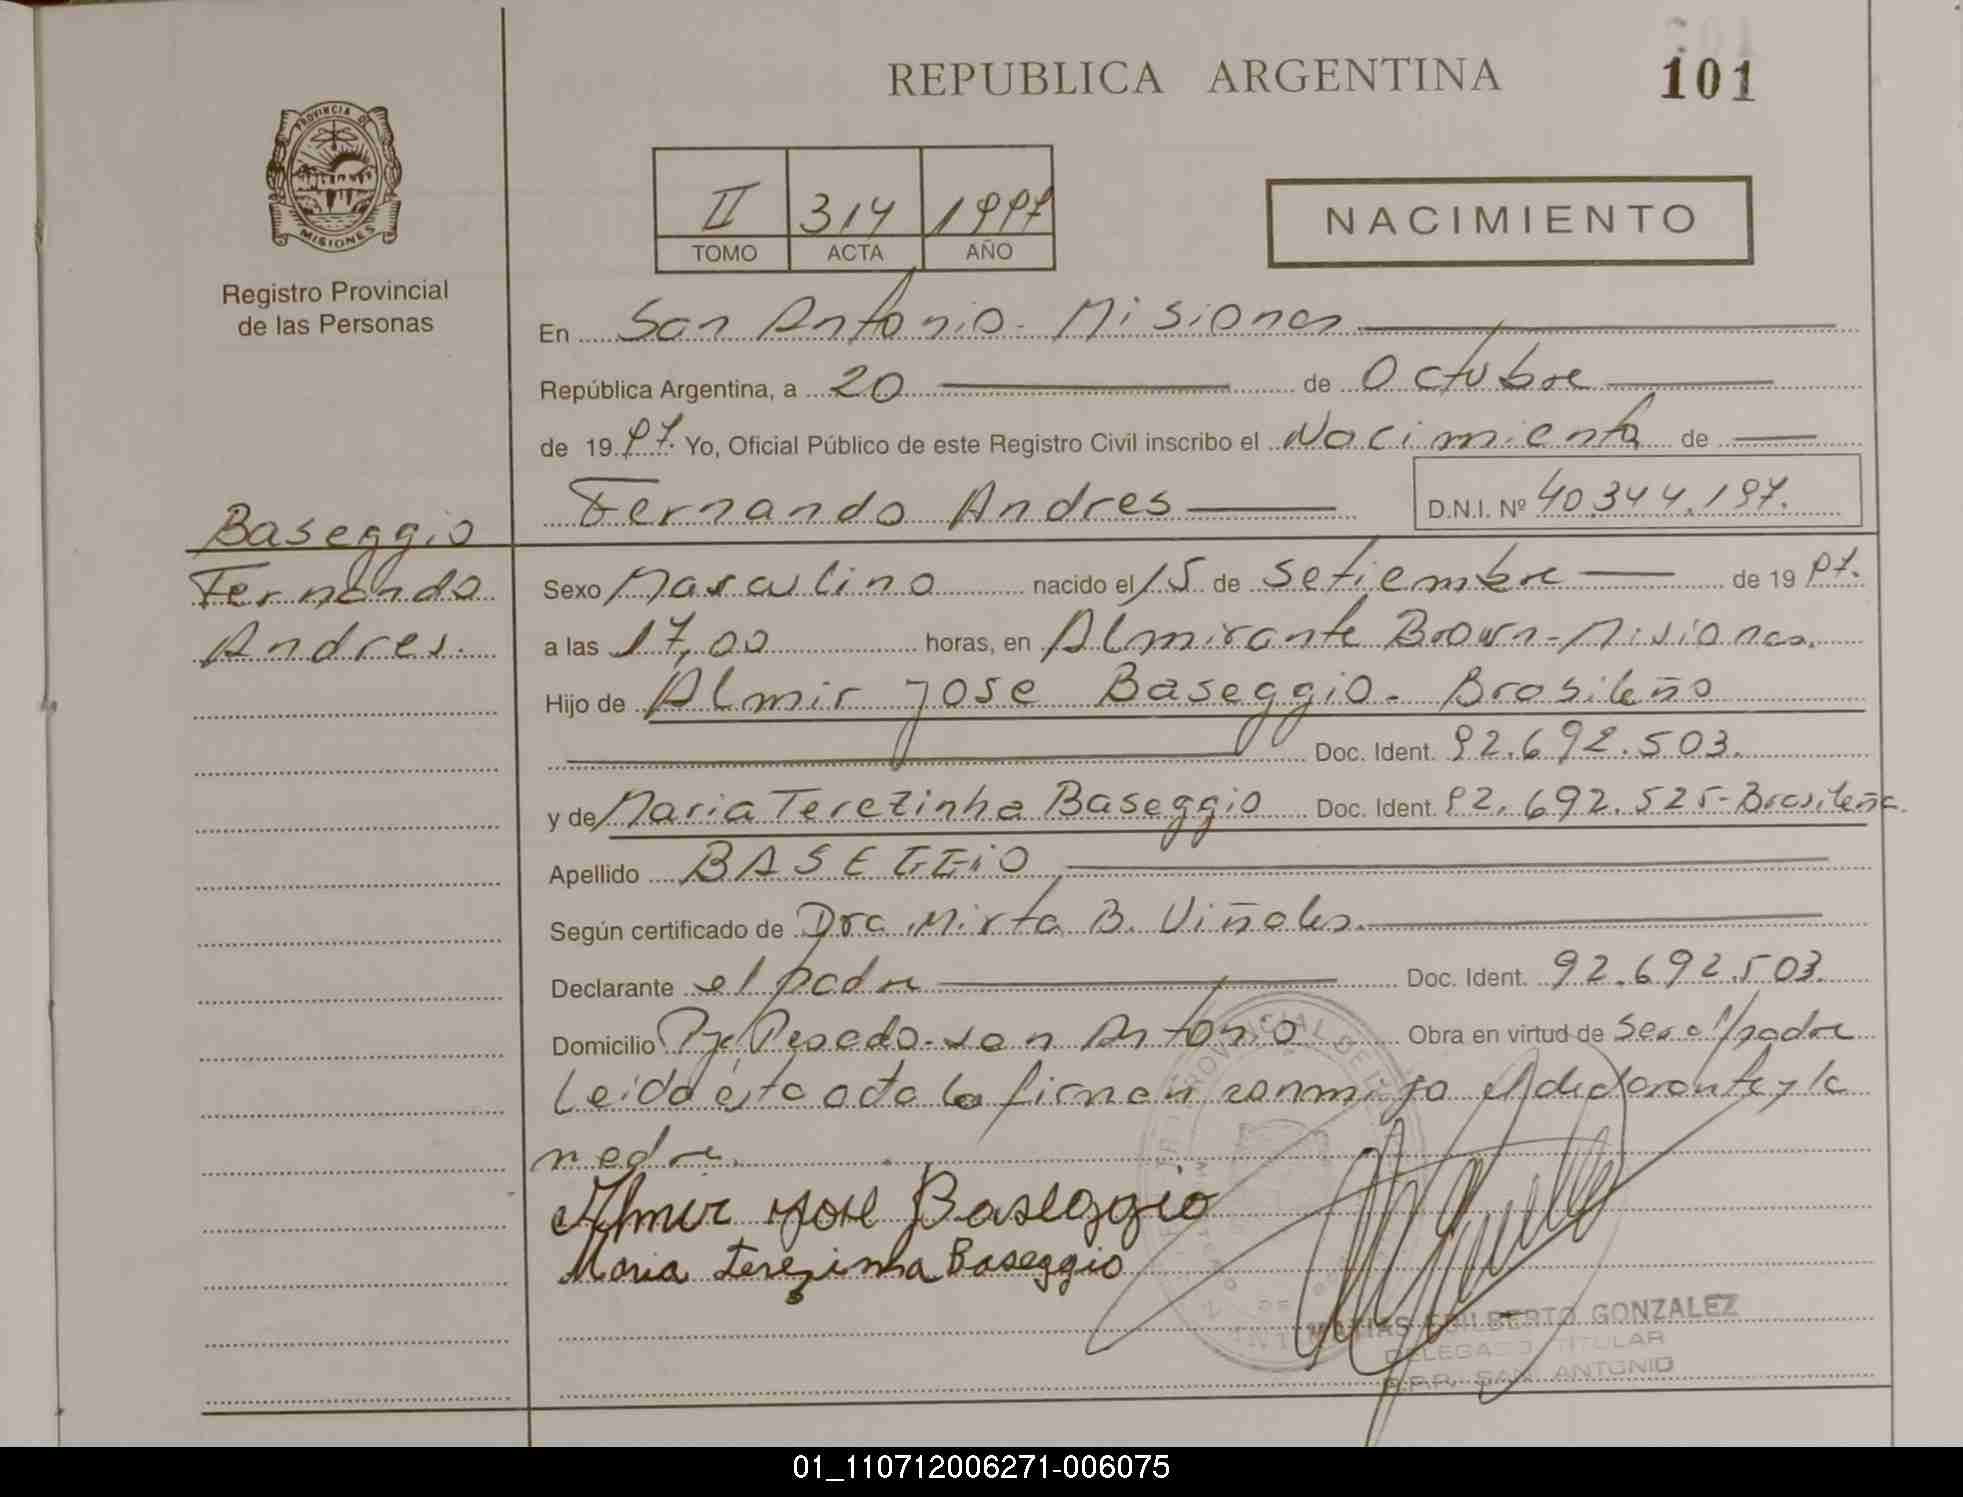 REPUBLICA ARGENTINA
101
PROVINCIA DE
MISIONES
Registro Provincial
de las Personas
II 314 1997
TOMO ACTA AÑO
NACIMIENTO
En San Antonio - Misiones
República Argentina, a 20 de Octubre
de 19 97. Yo, Oficial Público de este Registro Civil inscribo el Nacimiento de
Fernando Andres D.N.I. Nº 40.344.197.
Baseggio
Fernando
Andres.
Sexo Masculino nacido el 15 de Setiembre de 19 97.
a las 17,00 horas, en Almirante Brown - Misiones.
Hijo de Almir Jose Baseggio - Brasileño
Doc. Ident. 92.692.503.
y de Maria Terezinha Baseggio Doc. Ident. 92.692.525 - Brasileña.
Apellido BASEGGIO
Según certificado de Dra Mirta B. Viñales.
Declarante el padre Doc. Ident. 92.692.503.
Domicilio Pje Pesado - San Antonio Obra en virtud de Ser el padre
Leida ésta acta la firman conmigo el declarante y la
madre.
Almir Jose Baseggio
Maria Terezinha Baseggio
GUILBERTO GONZALEZ
DELEGADO TITULAR
R.P.P. SAN ANTONIO
01_110712006271-006075